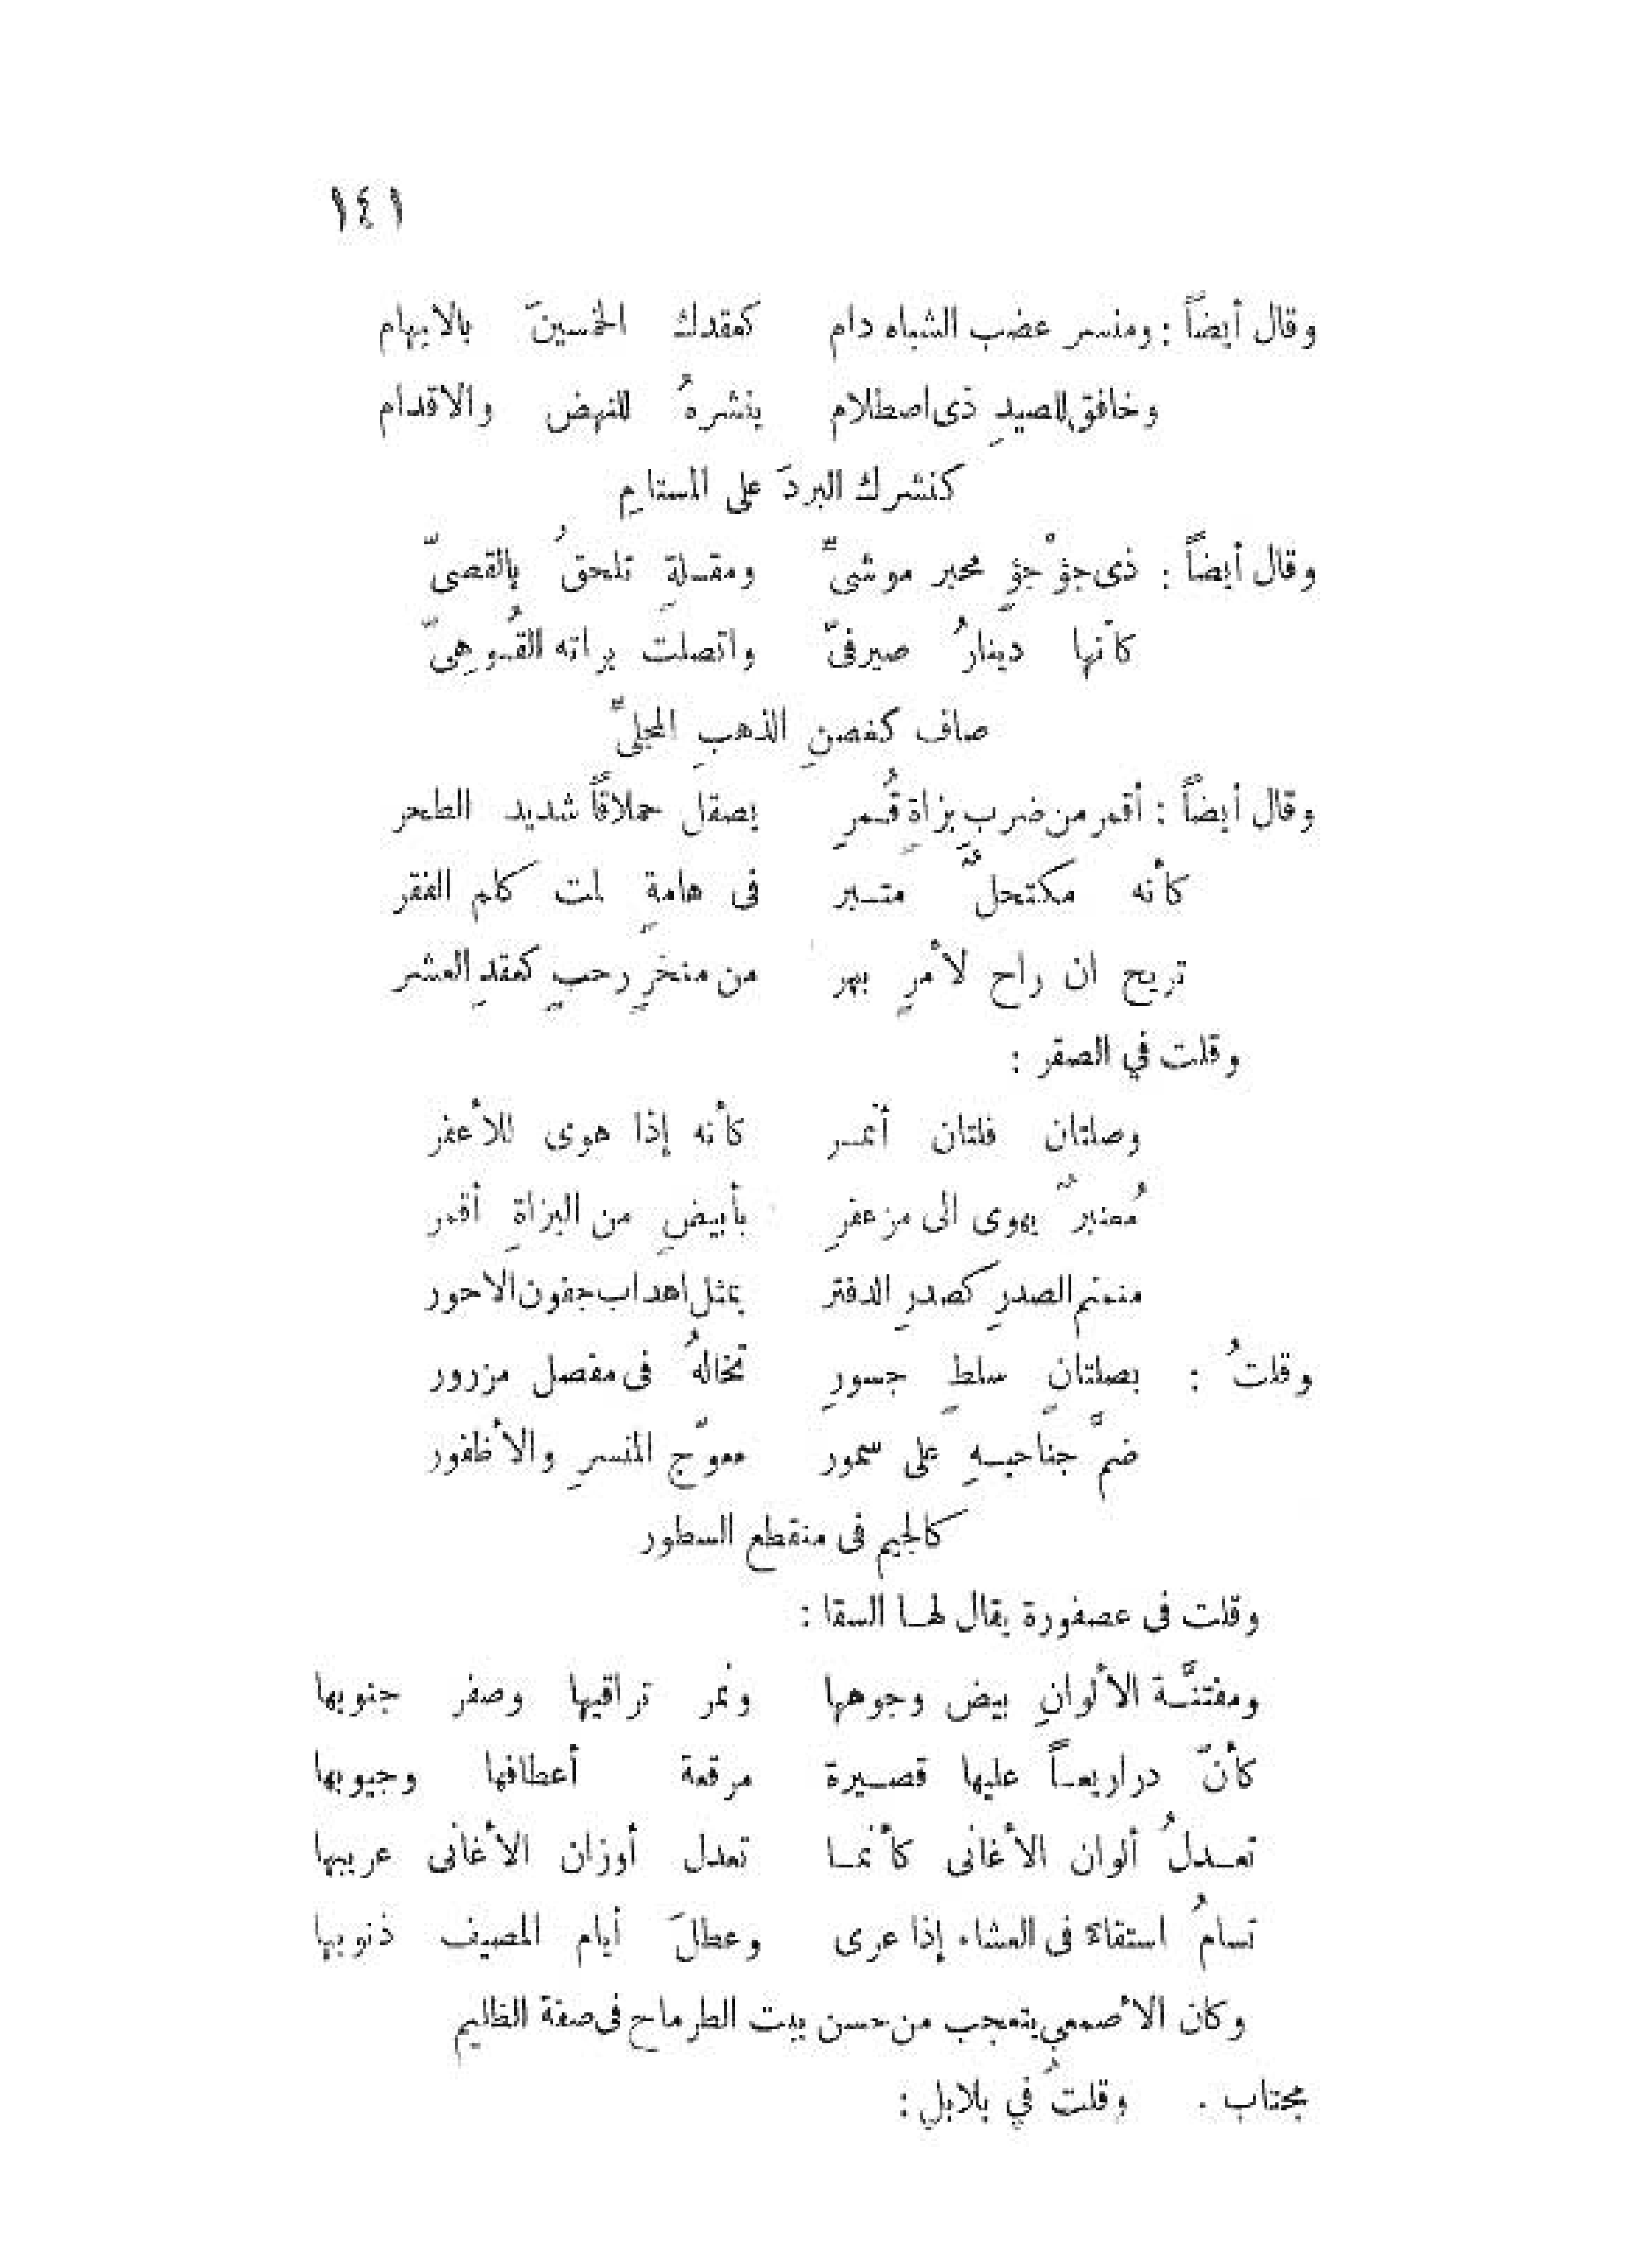 ١٤١
وقال أيضاً : ومنسر عضب الشباه دام كعقدك الخمسينَ بالابهام
وخافق للصيدِ ذى اصطلام ينشرهُ للنهض والاقدام
كنشرك البردَ على المستامِ
وقال أيضاً : ذى جؤْجؤٍ محبر موشىٍّ ومقـلةٍ تلحقُ بالقصىّ
كأنها دينارُ صيرفىّ واتصلت براته القُـوهىّ
صاف كغصنِ الذهبِ المجلىِّ
وقال أيضاً : أقمر من ضربِ بزاةٍ قُـمرِ يصقل حملاقاً شديد الطحر
كأنه مكتحلٌ متـبر فى هامةٍ لمت كلم الفقر
تريح ان راح لأمرٍ بهر من منخرٍ رحبٍ كعقدِ العشر
وقلت في الصقر :
وصلتان فلتان أنمـر كأنه إذا هوى للأعفر
مُعنبرٌ يهوى الى مزعفرِ بأبيضٍ من البزاةِ أقمر
منمنم الصدرِ كصدرِ الدفتر بمثل اهداب جفون الاحور
وقلتُ : بصلتانٍ سلطٍ جسورِ تخالهُ فى مفصل مزرور
ضمَّ جناحيـهِ على سمور معوّج المنسرِ والأظفور
كالجيم فى منقطع السطور
وقلت فى عصفورة يقال لهـا السقا :
ومفتنَّـة الألوانِ بيض وجوهها ونمر تراقيها وصفر جنوبها
كأنّ دراريعـاً عليها قصـيرة مرقعة أعطافها وجيوبها
تعـدلُ ألوان الأغانى كأنمـا تعدل أوزان الأغانى عريبها
تسامُ استقاءً فى العشاء إذا عرى وعطلَ أيام المصيف ذنوبها
وكان الأصمعي يتعجب من حسن بيت الطرماح فى صفة الظليم
مجتاب . وقلتُ في بلابل :